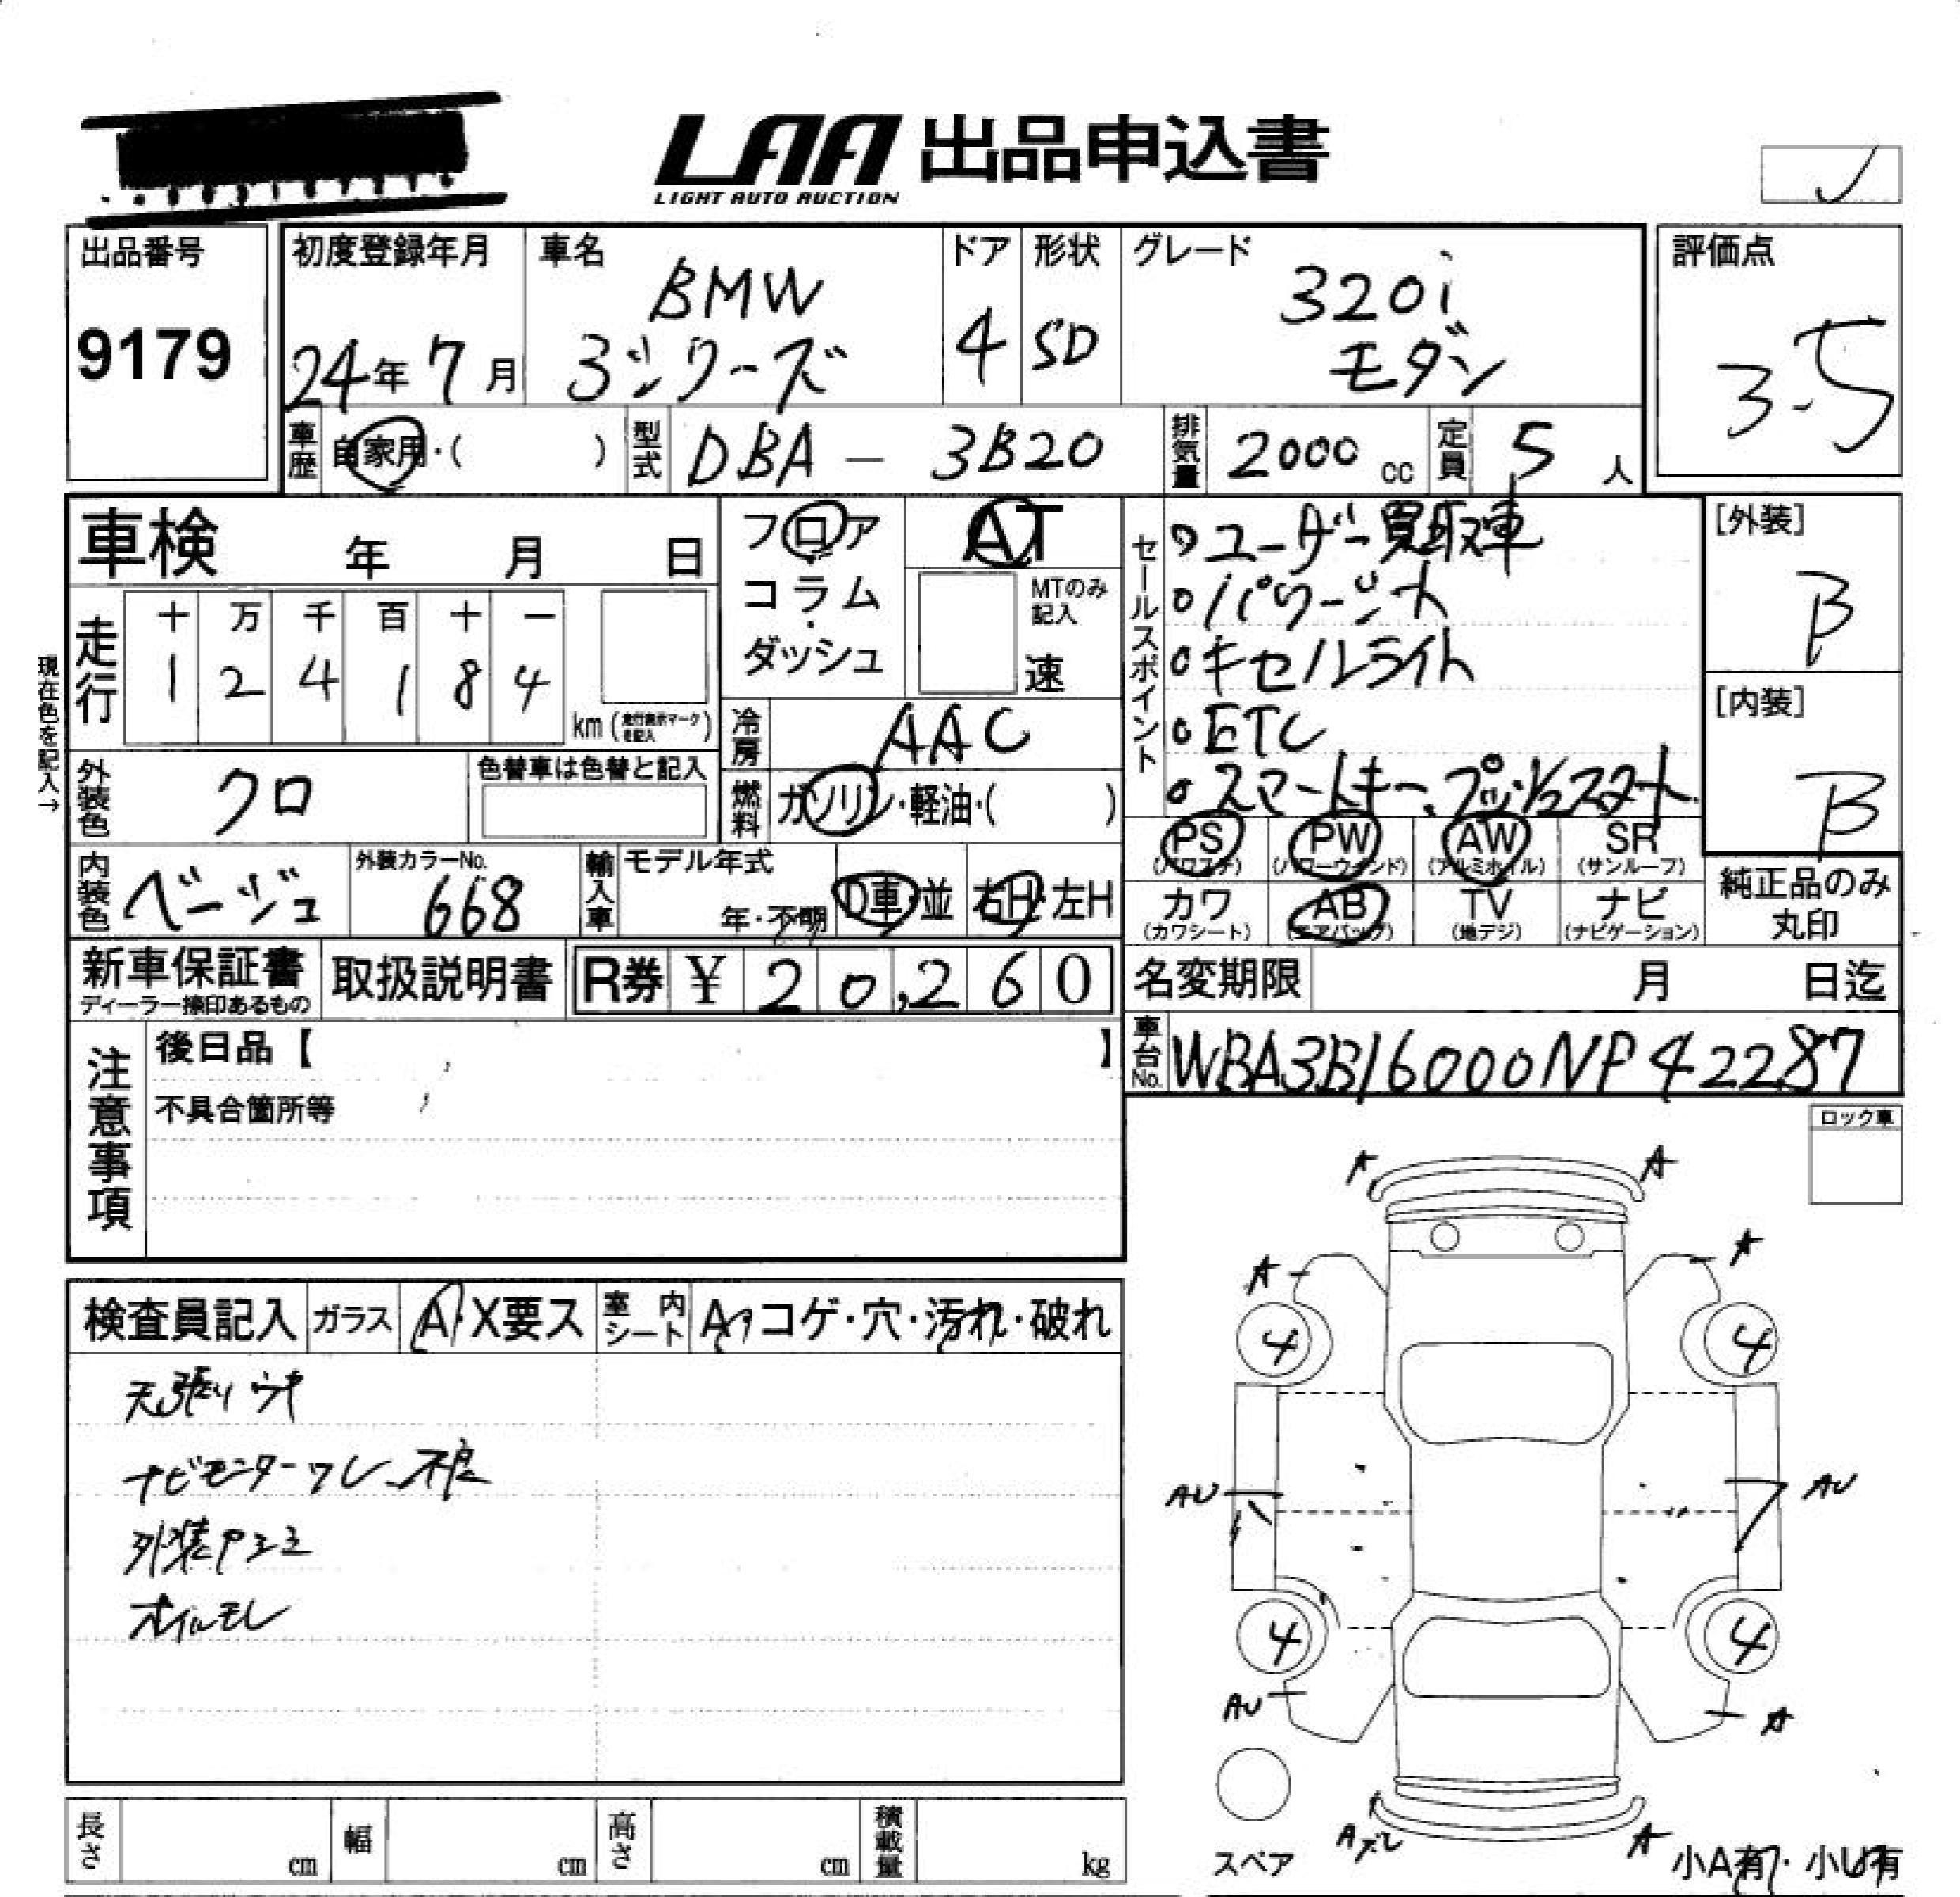 LAA 出品申込書
LIGHT AUTO AUCTION
出品番号
9179
初度登録年月
24年7月
車名
BMW
3シリーズ
ドア
4
形状
SD
グレード
320i
モダン
評価点
3.5
車歴
自家用・( )
型式
DBA - 3B20
排気量
2000 cc
定員
5 人
車検 年 月 日
フロア
コラム
ダッシュ
AT
MTのみ
記入
速
セールスポイント
ユーザー買取車
パワーシート
キセルライト
ETC
スマートキー、プッシュスタート
[外装]
B
[内装]
B
現在色を記入→
走行
十 万 千 百 十 一
1 2 4 1 8 4
km (走行表示マークを記入)
冷房
AAC
外装色
クロ
色替車は色替と記入
燃料
ガソリン・軽油・( )
内装色
ベージュ
外装カラーNo.
668
輸入車
モデル年式
年・不明
D車・並
右H・左H
PS
(パワステ)
PW
(パワーウインド)
AW
(アルミホイル)
SR
(サンルーフ)
カワ
(カワシート)
AB
(エアバッグ)
TV
(地デジ)
ナビ
(ナビゲーション)
純正品のみ
丸印
新車保証書
ディーラー捺印あるもの
取扱説明書
R券 ¥ 20,260
名変期限 月 日迄
車台No.
WBA3B16000NP42287
注意事項
後日品【 】
不具合箇所等
ロック車
検査員記入
ガラス
A・X要ス
室内シート
A・コゲ・穴・汚れ・破れ
天張りウキ
ナビモニターワレ、不良
外装アショ
オイルモレ
A A
A A
4 4
AU AU
4 4
AU A
スペア
Aズレ A
小A有・小U有
長さ cm
幅 cm
高さ cm
積載量 kg